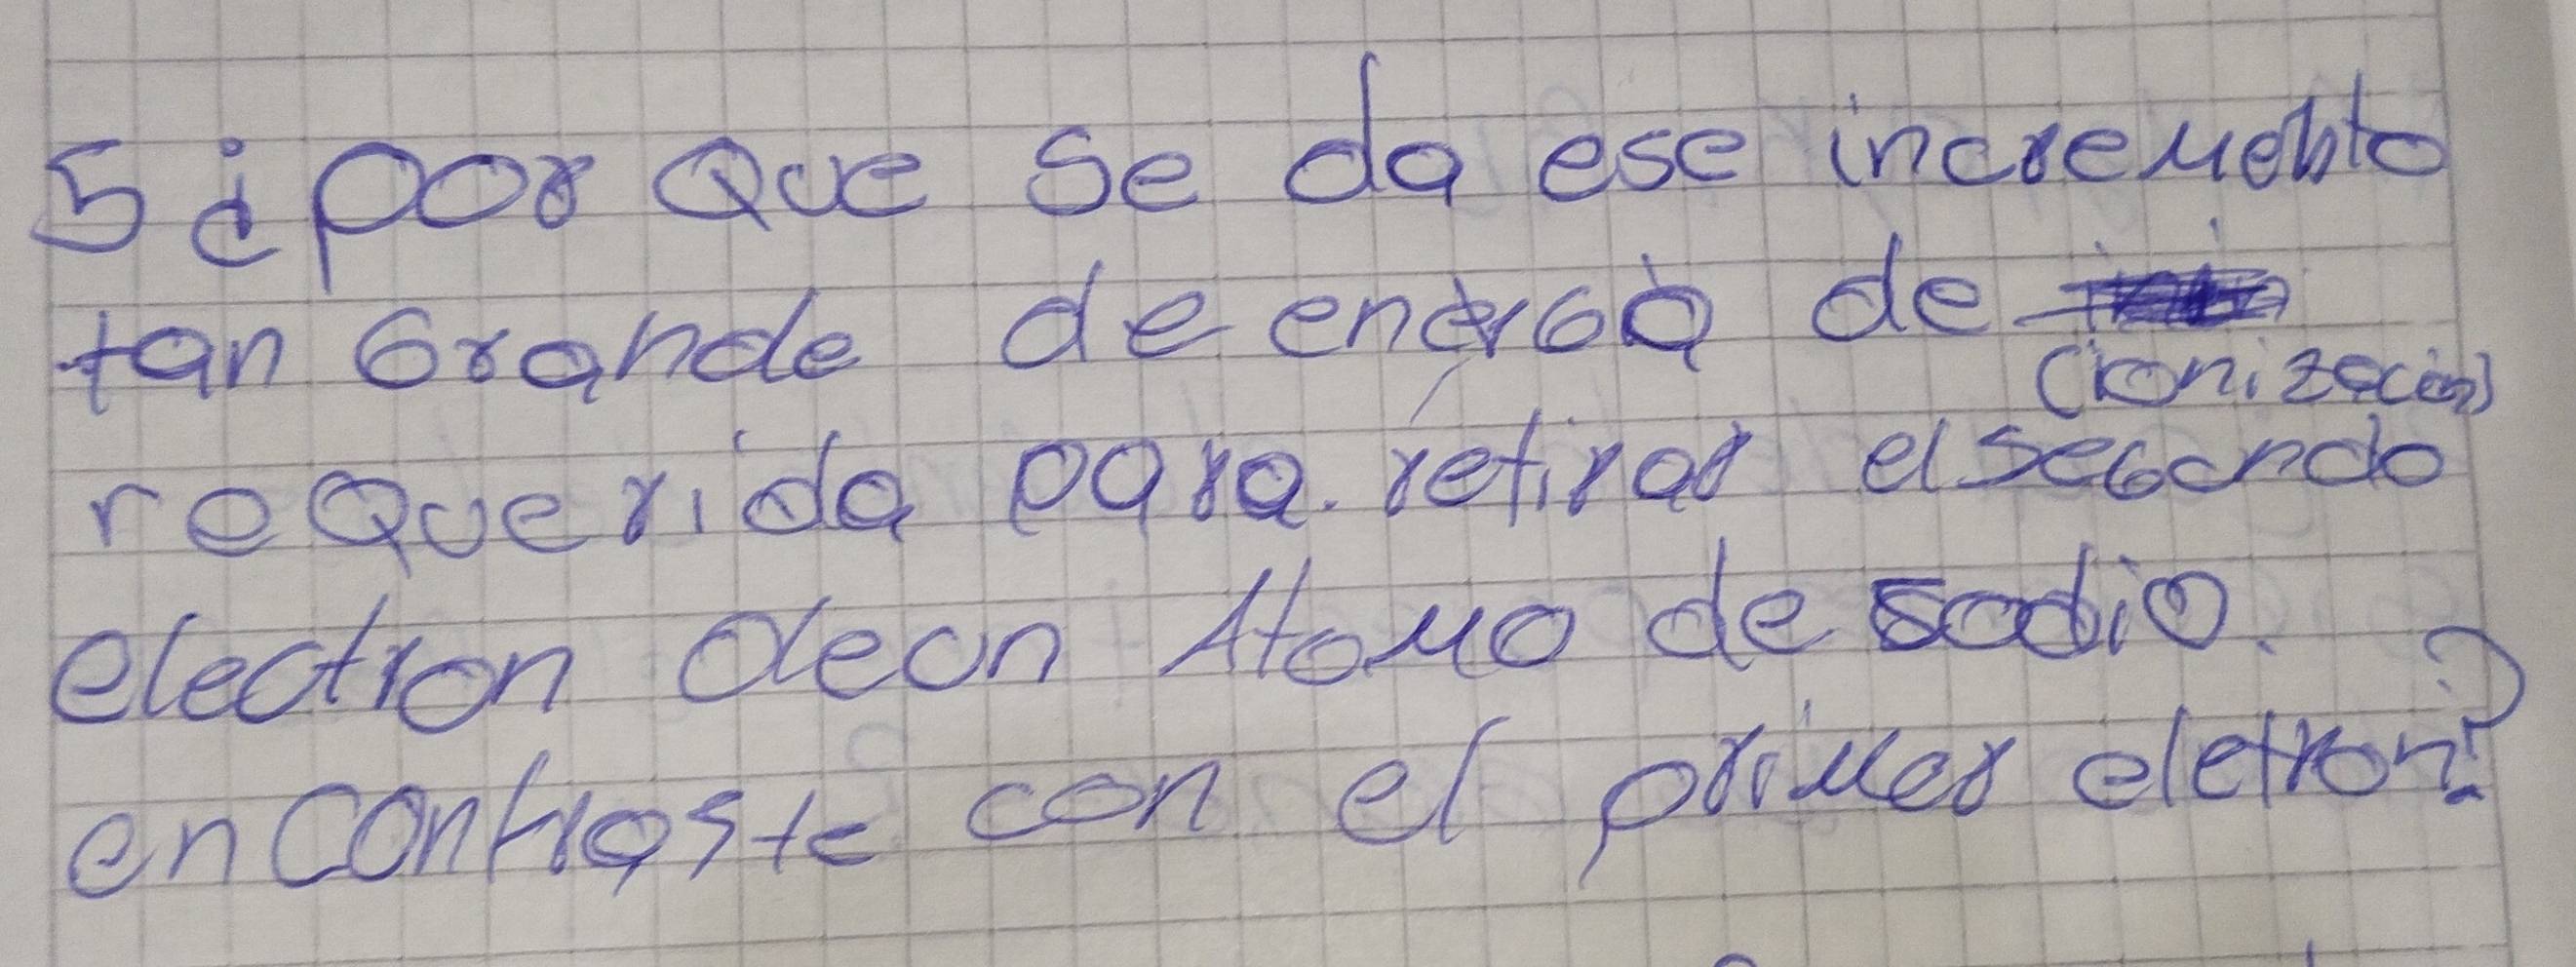 5 ¿por que se da ese incremento
tan Grande de energia de
(ionización)
requerida para retirar el segundo
electron de un Atomo de sodio.
en contraste con el primer eletron?